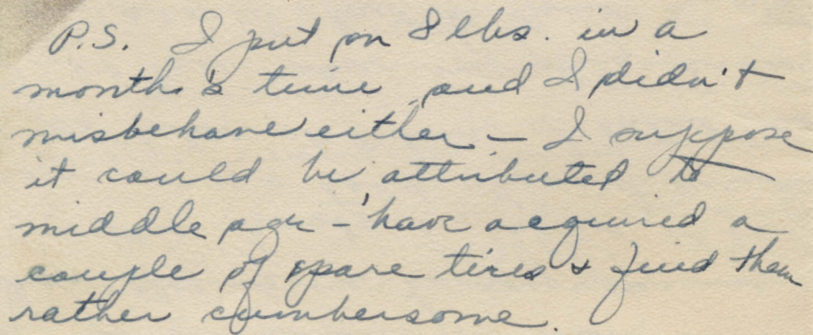 P.S. I put on 8 lbs. in a
month's time and I didn't
misbehave either – I suppose
it could be attributed to
middle age – 'have acquired a
couple of spare tires & find them
rather cumbersome.